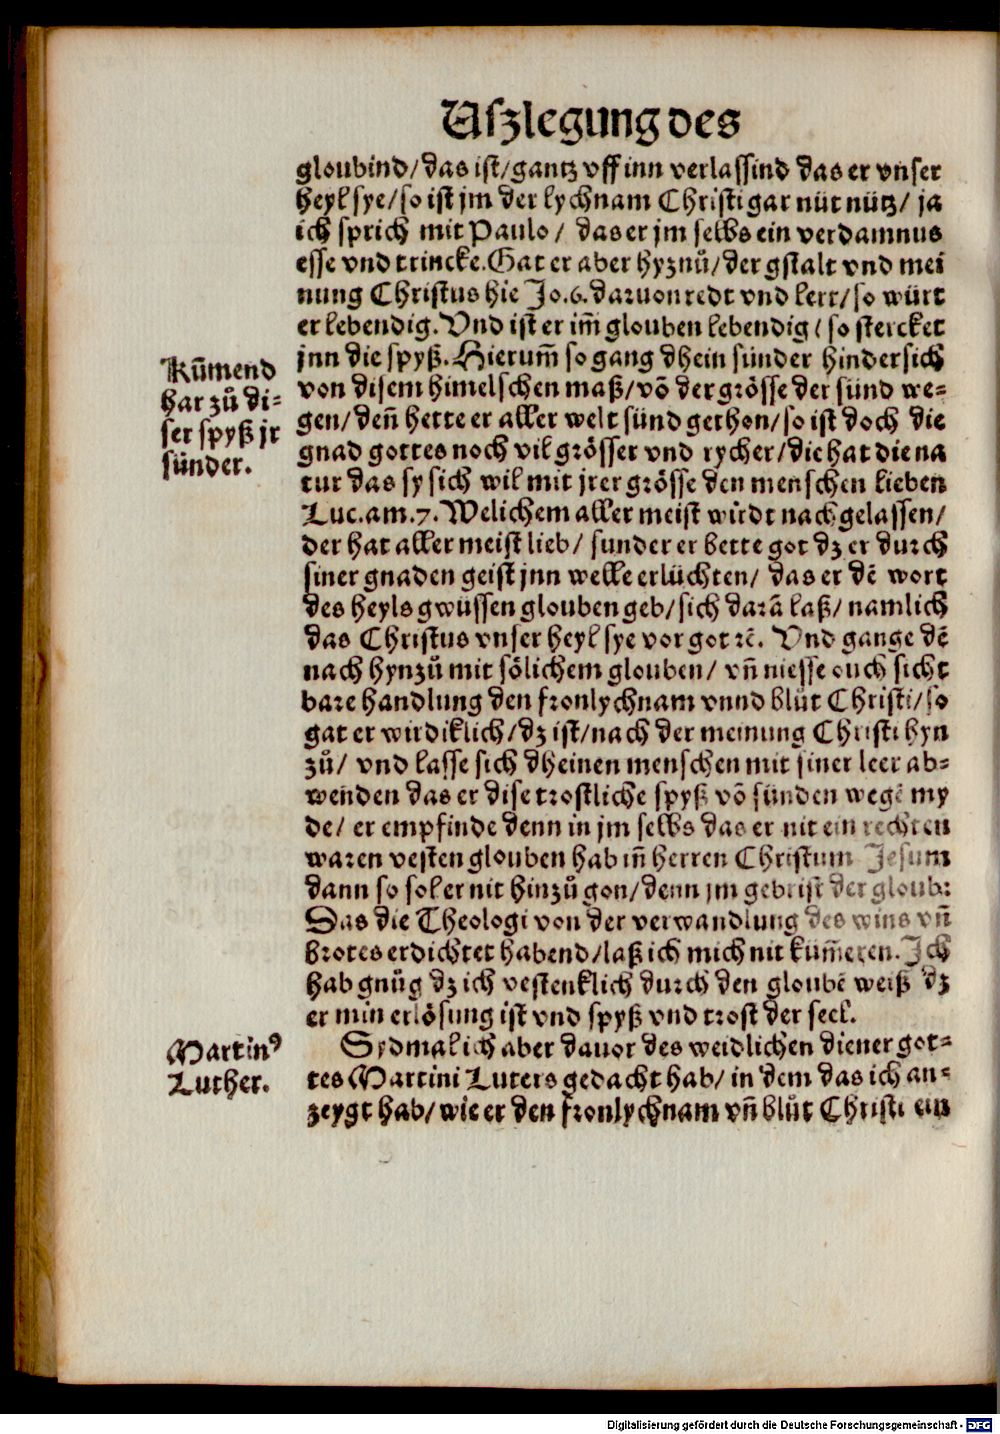 Uſzlegung des
gloubind/das iſt/gantz vff inn verlaſſind das er vnſer
heyl ſye/ſo iſt jm der lychnam Chriſti gar nüt nütz/ ja
ich ſprich mit Paulo/ das er jm ſelbs ein verdamnus
eſſe vnd trincke. Gat er aber hyznů/der gſtalt vnd mei
nung Chriſtus hie Jo.6. daruon redt vnd lert/ſo würt
er lebendig. Vnd iſt er im̃ glouben lebendig/ſo ſtercket
jnn die ſpyß. Hierum̃ ſo gang dhein ſünder hinderſich
von diſem himelſchen maß/vō der gröſſe der ſünd we-
gen/den̄ hette er aller welt ſünd gethon/ſo iſt doch die
gnad gottes noch vil gröſſer vnd rycher/die hat die na
tur das ſy ſich wil mit jrer gröſſe den menſchen lieben
Luc.am.7. Welichem aller meiſt würdt nachgelaſſen/
der hat aller meiſt lieb/ ſunder er bette got dz er durch
ſiner gnaden geiſt jnn welle erlüchten/ das er dē wort
des heyls gwüſſen glouben geb/ſich darā laß/ namlich
das Chriſtus vnſer heyl ſye vor got ꝛē. Vnd gange dē
nach hynzů mit ſölichem glouben/ vn̄ nieſſe ouch ſicht
bare handlung den fronlychnam vnnd blůt Chriſti/ſo
gat er wirdiklich/dz iſt/nach der meinung Chriſti hyn
zů/ vnd laſſe ſich dheinen menſchen mit ſiner leer ab-
wenden das er diſe troſtliche ſpyß vō ſünden wegē my
de/ er empfinde denn in jm ſelbs das er nit ein rechten
waren veſten glouben hab in̄ herren Chriſtum Jeſum
dann ſo ſol er nit hinzů gon/denn jm gebriſt der gloub:
Das die Theologi von der verwandlung des wins vn̄
brotes erdichtet habend/laß ich mich nit küm̄eren. Ich
hab gnůg dz ich veſtenklich durch den gloubē weiß dz
er min erlöſung iſt vnd ſpyß vnd troſt der ſeel.
Sydmal ich aber dauor des weidlichen diener got-
tes Martini Luters gedacht hab/ in dem das ich an-
zeygt hab/wie er den fronlychnam vn̄ blůt Chriſti ein
Kūmend
har zů di-
ſer ſpyß jr
ſünder.
Martinꝰ
Luther.
Digitalisierung gefördert durch die Deutsche Forschungsgemeinschaft - DFG